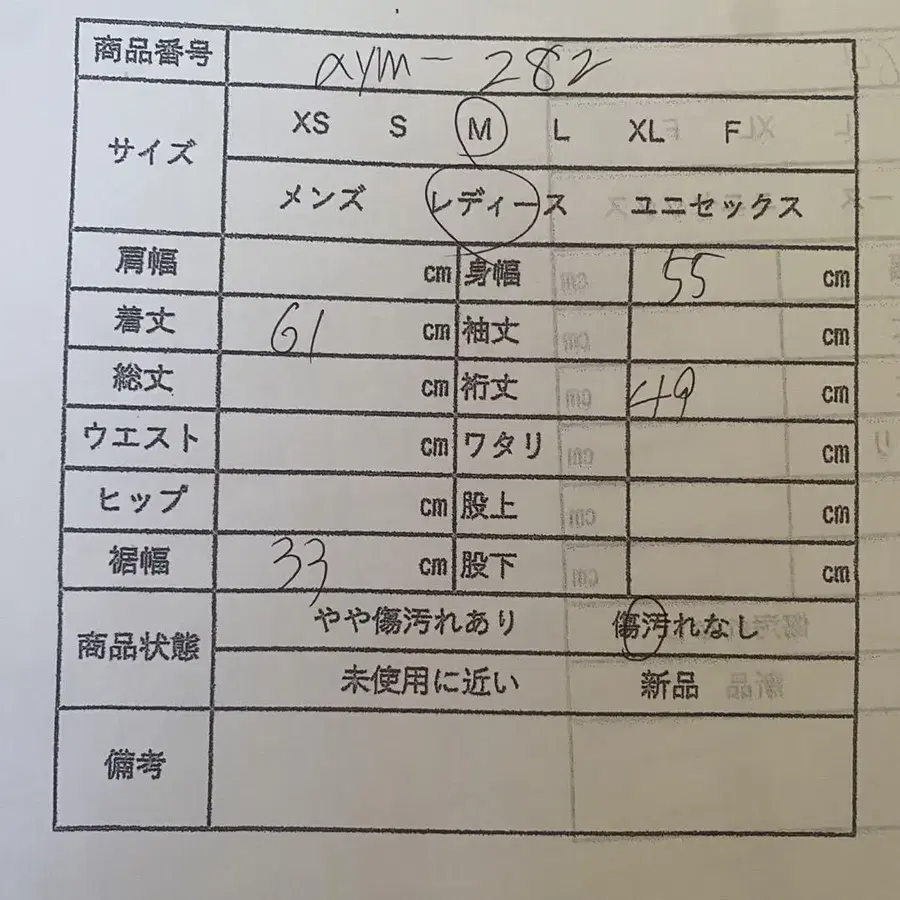 商品番号 aym-282
サイズ XS S M L XL F
メンズ レディース ユニセックス
肩幅 cm 身幅 55 cm
着丈 61 cm 袖丈 cm
総丈 cm 裄丈 49 cm
ウエスト cm ワタリ cm
ヒップ cm 股上 cm
裾幅 33 cm 股下 cm
商品状態 やや傷汚れあり 傷汚れなし
未使用に近い 新品
備考